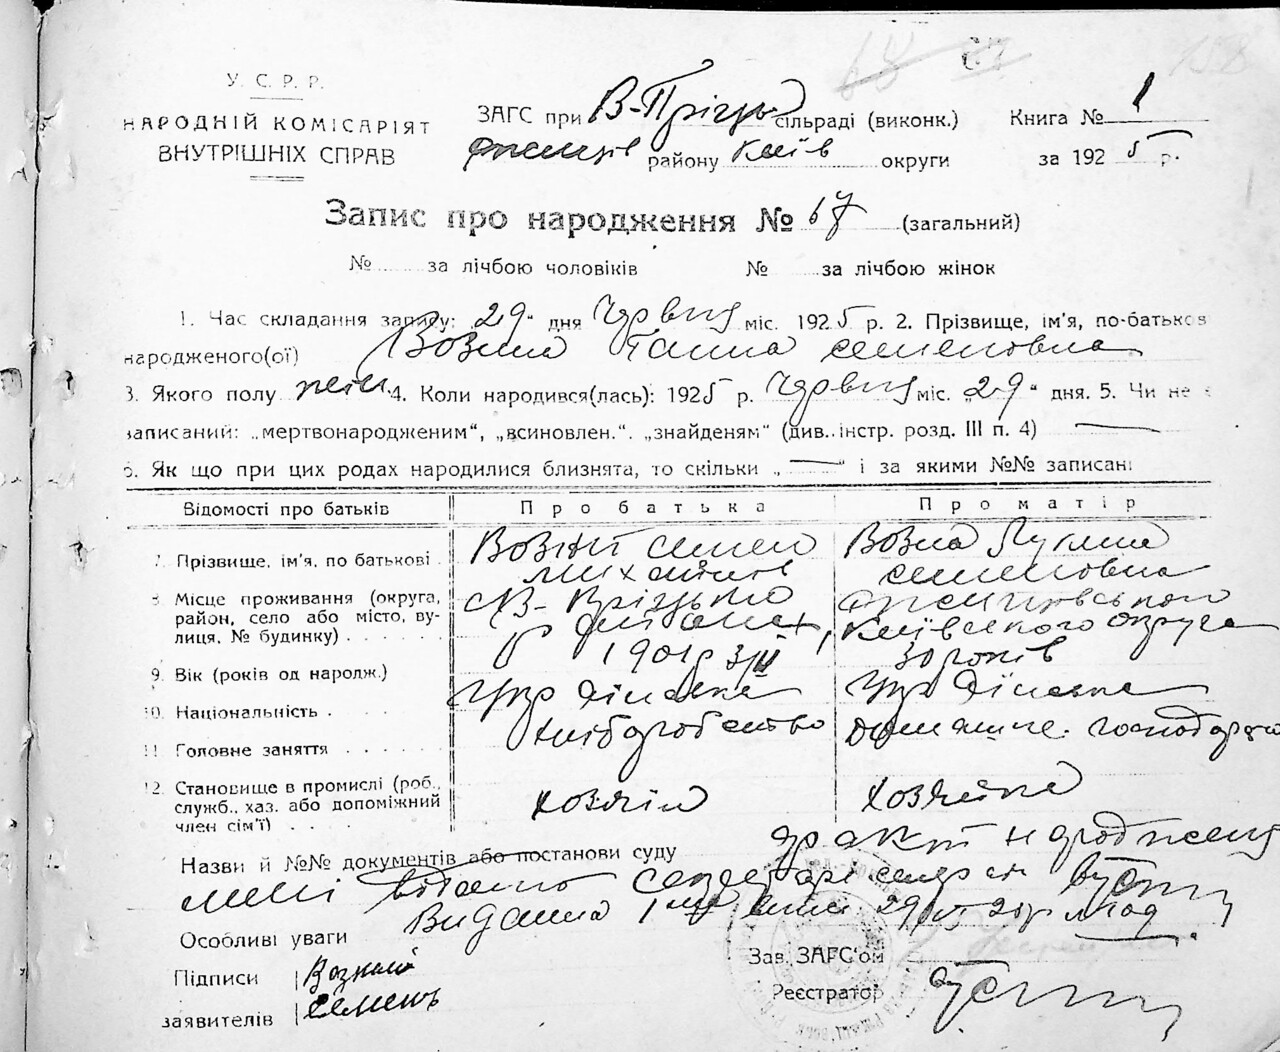 У. С. Р. Р.
НАРОДНІЙ КОМІСАРІЯТ
ВНУТРІШНІХ СПРАВ
ЗАГС при В-Пріцьк сільраді (виконк.) Книга № 1
району Київ округи за 1925 р.
Запис про народження № 67 (загальний)
№ за лічбою чоловіків № за лічбою жінок
1. Час складання запису: 29 " дня Червня міс. 1925 р. 2. Прізвище, ім'я, по-батьков
народженого(ої) Возна Ганна Семеновна
3. Якого полу жін 4. Коли народився(лась): 1925 р. Червня міс. „29" дня. 5. Чи не є
записаний: „мертвонародженим", „всиновлен.". „знайденям" (див. інстр. розд. III п. 4) —
6. Як що при цих родах народилися близнята, то скільки „ — " і за якими №№ записані
Відомості про батьків Про батька Про матір
7. Прізвище, ім'я, по батькові Возний Семен Возна Лукина
Михайлов Семеновна
8. Місце проживання (округа,
район, село або місто, ву-
лиця, № будинку) Київського округа
9. Вік (років од народж.) 1901 р 3/II 30 років
10. Національність Українська Українська
11. Головне заняття Хліборобство Домашнє господарство
12. Становище в промислі (роб.,
служб., хаз. або допоміжний
член сім'ї) Хозяін Хозяйка
Назви й №№ документів або постанови суду факт народження
мені відомо секретарь сельради
Особливі уваги Видана
Підписи Возный
заявителів Семенъ
Зав. ЗАГС'ом
Реєстратор